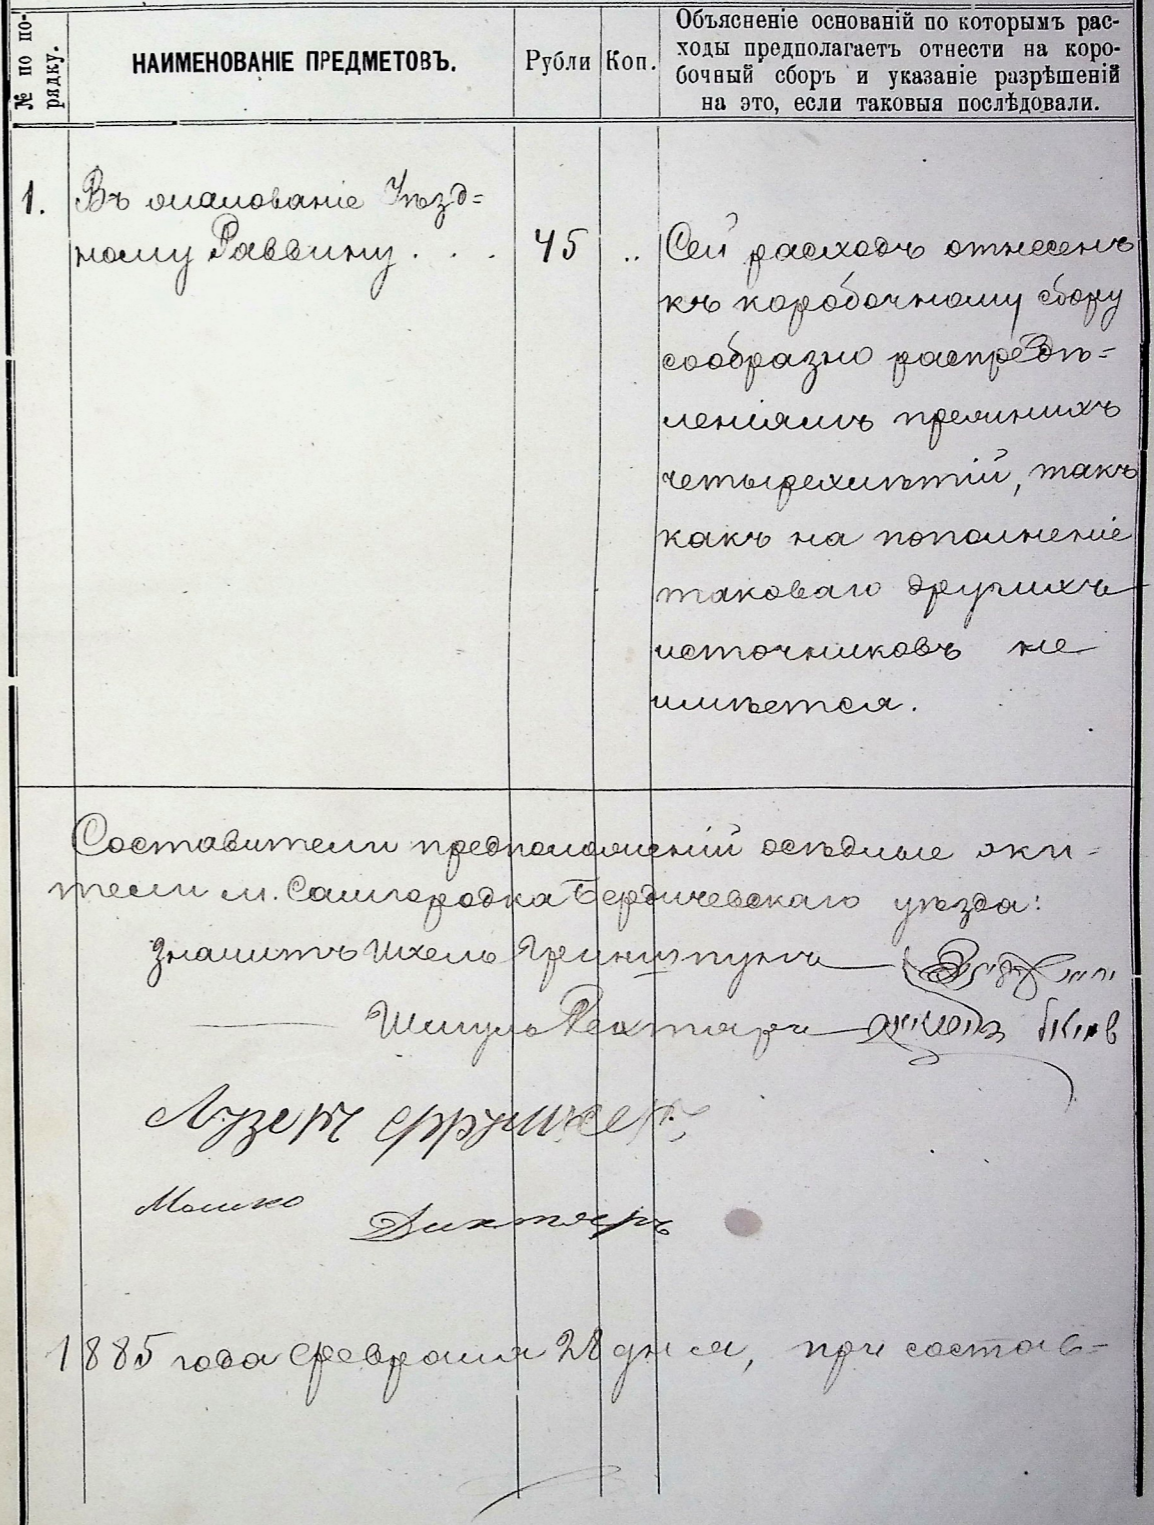 № по по-
рядку.
НАИМЕНОВАНІЕ ПРЕДМЕТОВЪ.
Рубли
Коп.
Объясненіе основаній по которымъ рас-
ходы предполагаетъ отнести на коро-
бочный сборъ и указаніе разрѣшеній
на это, если таковыя послѣдовали.
1.
Въ жалованіе Уѣзд=
ному Раввину . . .
45
..
Сей расходъ отнесенъ
къ коробочному сбору
сообразно распредѣ=
леніямъ прежнихъ
четырехлѣтій, такъ
какъ на пополненіе
таковаго другихъ
источниковъ не
имѣется.
Составители предположеній осѣдлые жи-
тели м. Самгородка Бердичевскаго уѣзда:
Значитъ Ихель Гриншпунъ
Шмуль Рехтеръ
Лузеръ
Мошко Дихтяръ
1885 года февраля 28 дня, при состав-